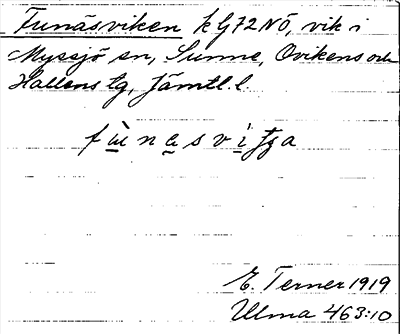 Funäsviken k G72NÖ, vik i
Myssjö sn, Sunne, Ovikens och
Hallens tg, Jämtl. l.
fùnasvìtʃa
E. Terner 1919
Ulma 463:10